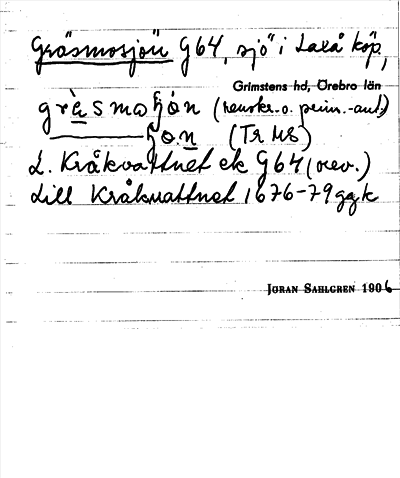 Gräsmosjön G64, sjö i Laxå köp,
Grimstens hd, Örebro län
grèsmoʃón (renskr. o. prim.-ant.)
ʃon (Tr MS)
L. Kråkvattnet ek G64 (rev.)
Lill Kråkvattnet 1676-79 ggk
Jöran Sahlgren 1906